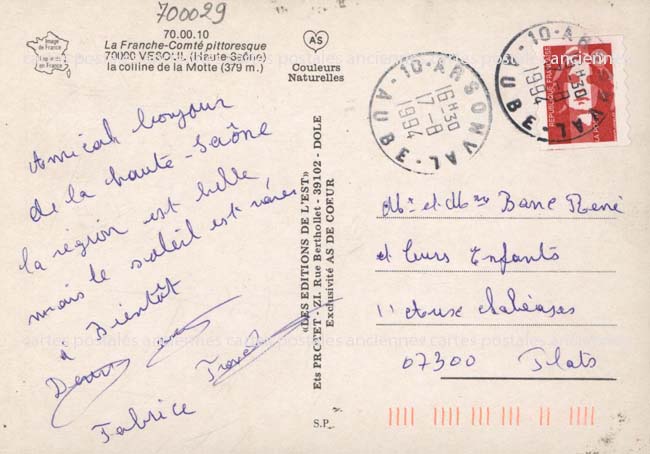 700029
70.00.10
La Franche-Comté pittoresque
70000 VESOUL (Haute-Saône)
la colline de la Motte (379 m.)
Image de France
AS
Couleurs
Naturelles
Amical bonjour
de la haute-Saône
la région est belle,
mais le soleil est
à Bientôt
Fabrice
«LES EDITIONS DE L'EST»
Ets PROTET - Z.I. Rue Berthollet - 39102 - DOLE
Exclusivité AS DE COEUR
S.P.
10 - ARSONVAL
16H30
17-8
1994
AUBE
10 - ARSONVAL
H30
-8
1994
AUBE
REPUBLIQUE FRANÇAISE
LA POSTE
Mr et Mme Banc René
et leurs Enfants
07300 Plats
cartes postales anciennes cartes postales anciennes cartes postales anciennes